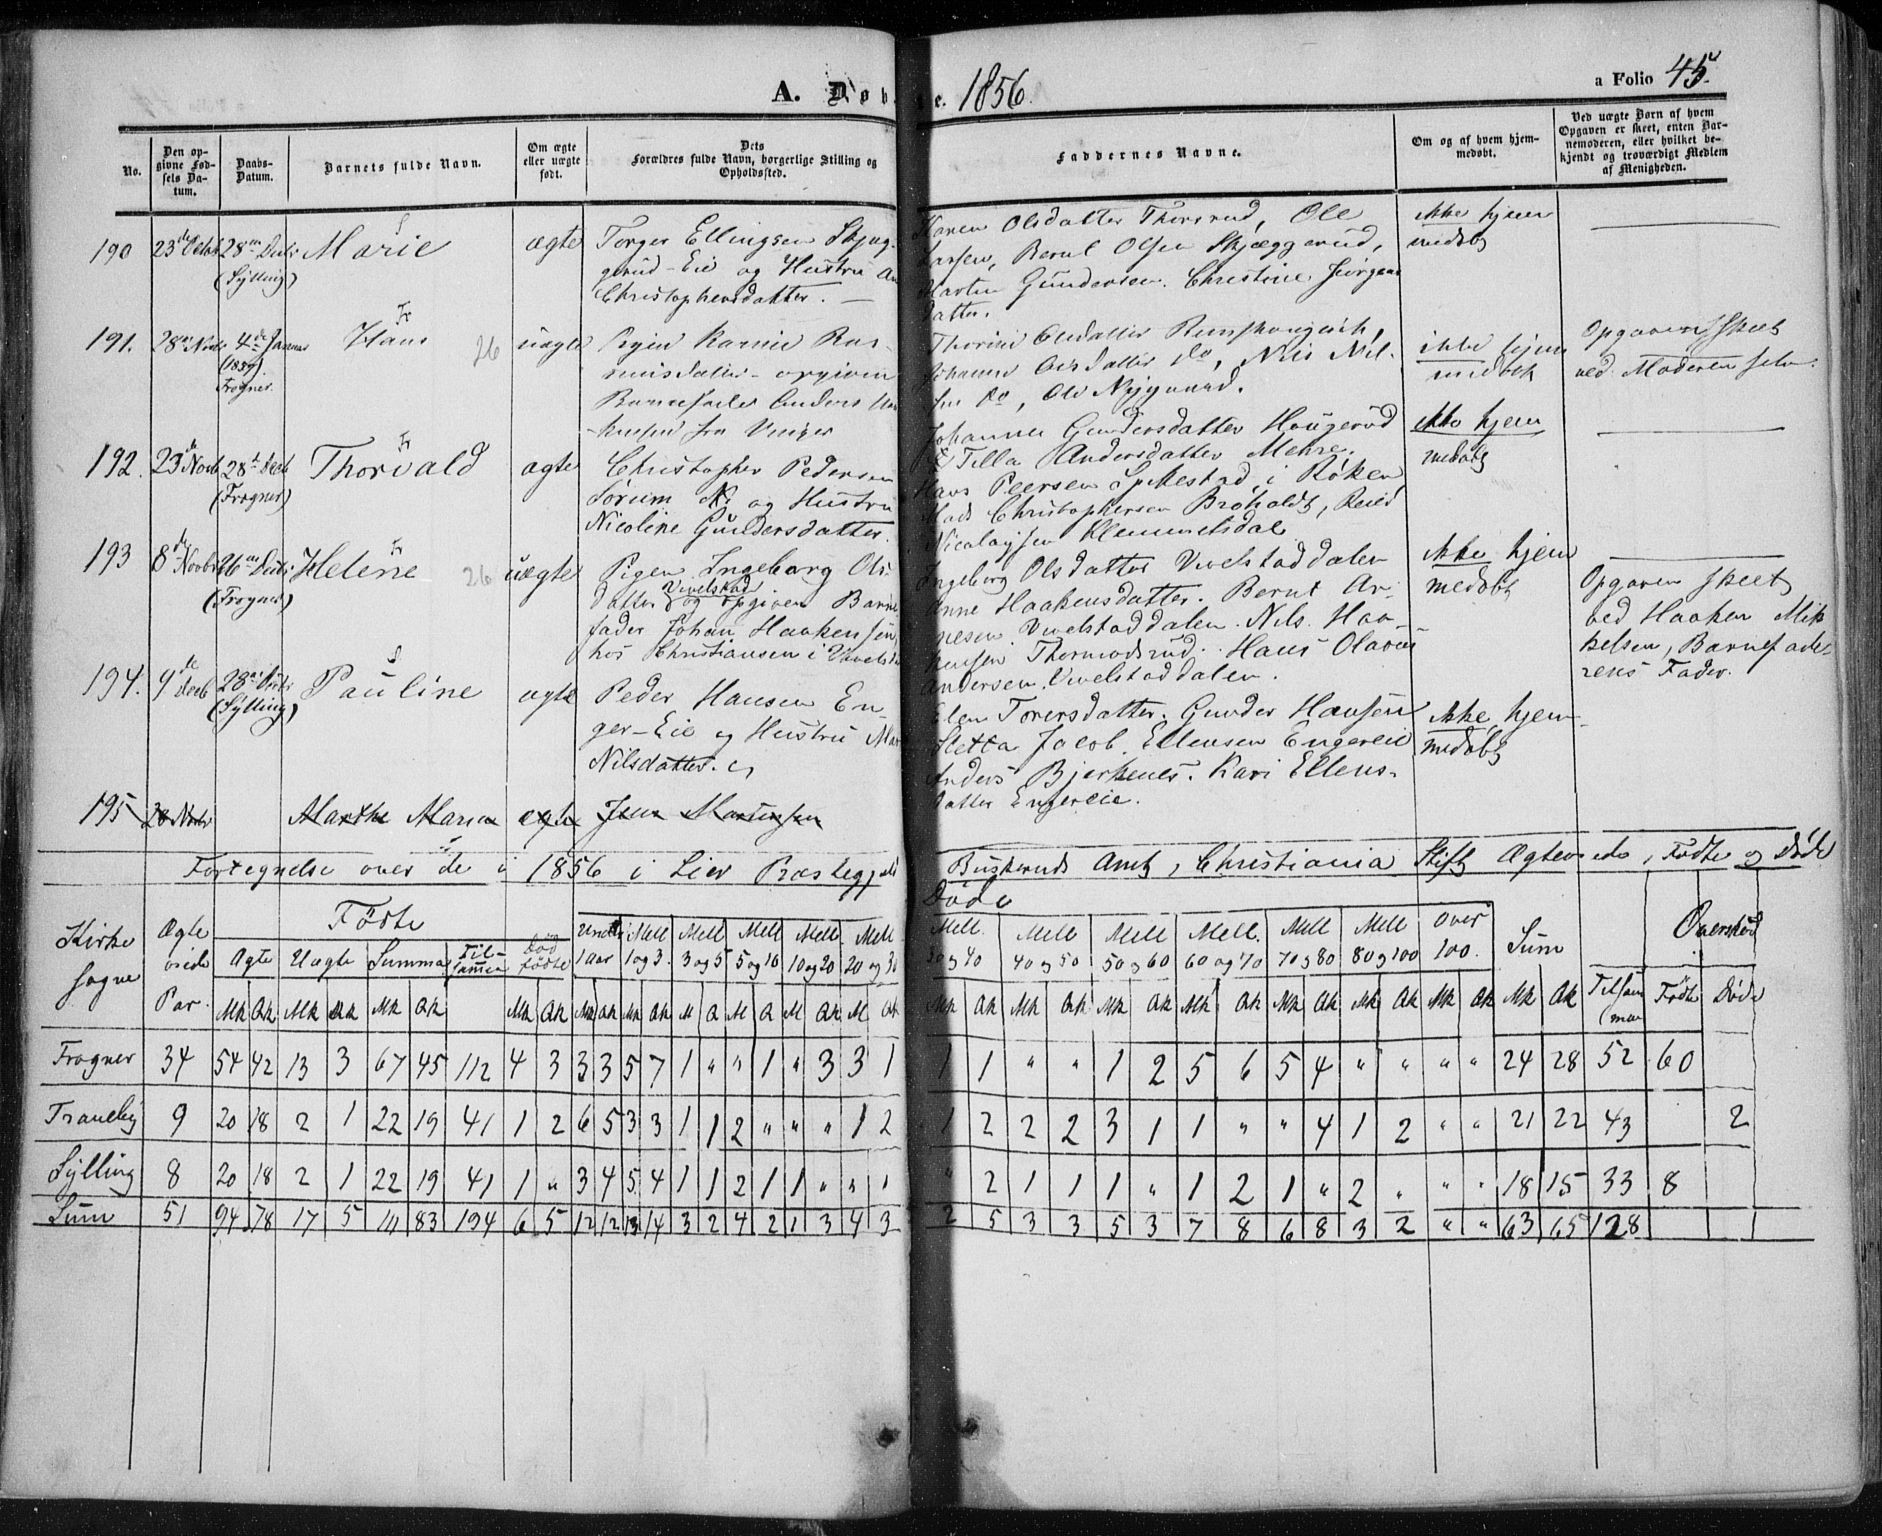 A. Døbte. 1856. a Folio 45.
No. Den opgivne Fødsels Datum. Daabs-Datum. Barnets fulde Navn. Om ægte eller uægte født. Dets Forældres fulde Navn, borgerlige Stilling og Opholdssted. Faddernes Navne. Om og af hvem hjemmedøbt. Ved uægte Børn af hvem Opgaven er skeet, enten Barnemoderen, eller hvilket bekjendt og troværdigt Medlem af Menigheden.
190 23de Octob 28de Decbr (Sylling) S Marie ægte Torger Ellingsen Skjæg-
gerud-Eie og Hustru An
Christophersdatter.
Karen Olsdatter Thorsrud, Ole
Larsen, Bernt Olsen Skjæggerud,
Martin Gundersen. Christine Jørgens
datter.
ikke hjem
medøbt
191. 28de Novbr 4de Januar (1857) Frogner Fr Hans 26 uægte Pigen Karnie Ras-
musdatter - opgiven
Barnefader Anders
fra Vinger
Thorine Olsdatter
Johanne Olsdatter do, Nils Nil-
sen do, Ole Nygaard.
ikke hjem
medøbt
Opgaven skeet
ved Moderen selv.
192. 23de Novb 28de Decb (Frogner) Fr Thorvald ægte Christopher Pedersen
Sørum og Hustru
Nicoline Gundersdatter.
Johanne Gundersdatter Haugerud
Tilla Andersdatter Mehre.
Hans Peersen Spikestad i Røken
Mads Christophersen Broholdt, Reier
Nicolaysen Klemmetsdal
ikke hjem
medøbt
193 8de Novbr 26de Decbr (Frogner) Fr Helene 26 uægte Pigen Ingeborg Ols-
datter Vivelstad og opgiven Barne
fader Johan Haakensen
hos Christiansen i Vivelstad
Ingeborg Olsdatter Vivelstaddalen
Anne Haakensdatter. Bernt Ar-
nesen Vivelstaddalen. Nils Haa-
kensen Thormodsrud. Hans Olavus
Andersen Vivelstaddalen.
ikke hjem
medøbt
Opgaven skeet
ved Haaken Mik
kelsen, Barnefade-
rens Fader.
194. 9de Decb 28de Decbr (Sylling) S Pauline ægte Peder Hansen En-
ger-Eie og Hustru Mar
Nilsdatter.
Elen Torersdatter. Gunder Hansen
Sletta Jacob Ellensen Engereie
Anders Bjerkenes. Kari Ellens-
datter Engereie.
ikke hjem-
medøbt
195 28 Novbr Marthe Maria ægte Jens Martinsen
Fortegnelse over de i 1856 i Lier Præstegjeld Buskeruds Amt, Christiania Stift Ægteviede, Fødte og Døde
Kirke sogne Ægte viede Par. Fødte Døde
Ægte Uægte Summa Tilsammen Død fødte Under 1 Aar Mell 1 og 3 Mell 3 og 5 Mell 5 og 10 Mell 10 og 20 Mell 20 og 30 Mell. 30 og 40 Mell 40 og 50 Mell 50 og 60 Mell. 60 og 70 Mell 70 og 80 Mell 80 og 100 Over 100. Sum Overskud
Mk Qk Mk Qk Mk Qk Mk Qk Mk Qk Mk Qk M Q M Q M Qk M Qk Mk Qk Mk Qk Mk Qk Mk Qk Mk Qk Mk Qk Mk Qk Mk Qk Tilsammen Fødte Døde
Frogner 34 54 42 13 3 67 45 112 4 3 3 3 5 7 1 " " 1 " 3 3 1 1 1 " " 1 2 5 6 5 4 " " " " 24 28 52 60
Traneby 9 20 18 2 1 22 19 41 1 2 6 5 3 3 1 1 2 " " " 1 2 1 2 2 2 3 1 1 " " 4 1 2 " " 21 22 43 2
Sylling 8 20 18 2 1 22 19 41 1 " 3 4 5 4 1 1 2 1 1 " " " " 2 1 1 1 " 1 2 1 " 2 " " " 18 15 33 8
Sum 51 94 78 17 5 111 83 194 6 5 12 12 13 14 3 2 4 2 1 3 4 3 2 5 3 3 5 3 7 8 6 8 3 2 " " 63 65 128 1